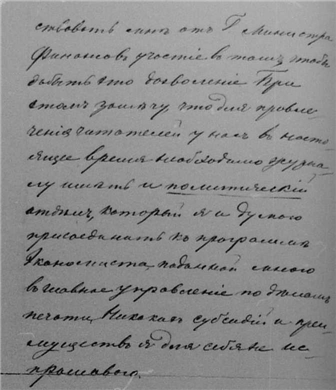 ствовать мнѣ отъ Г. Министра
Финансовъ участіе въ томъ, чтобы
добыть это дозволеніе. При
этомъ замѣчу, что для привле-
ченія читателей у насъ въ насто-
ящее время необходимо журна-
лу имѣть и политическій
отдѣлъ, который я и думаю
присоединить къ программѣ
Экономиста, поданной мною
въ главное управленіе по дѣламъ
печати. Никакихъ субсидій и преи-
муществъ я для себя не ис-
прашиваю.